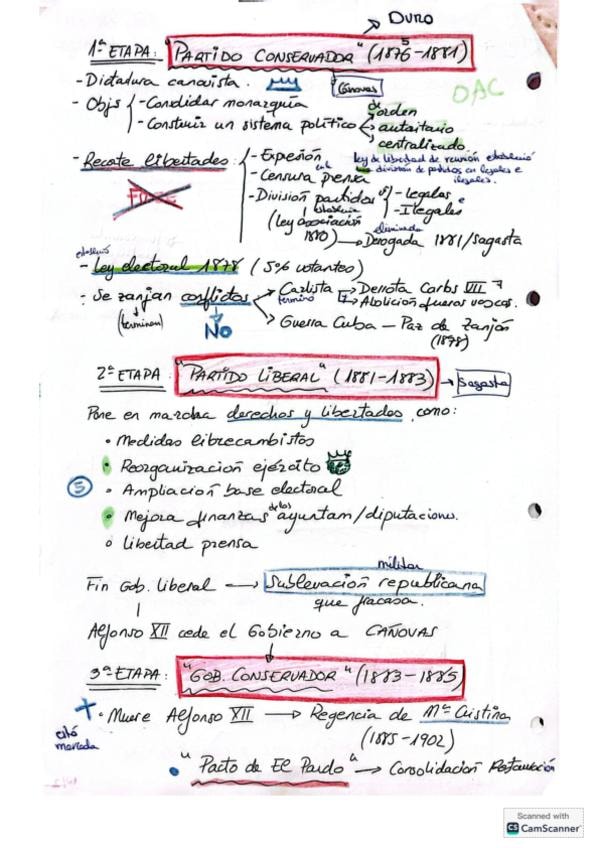 DURO
1ª ETAPA: "PARTIDO CONSERVADOR" (1875-1881)
- Dictadura canovista. Cánovas
OAC
- Objs - Consolidar monarquía
- Construir un sistema político orden
autoritario
centralizado.
- Recorte libertades: - Expresión
ley de libertad de reunión estableció
división de partidos en legales e ilegales.
- Censura en la prensa
- División partidos - Legales e
- Ilegales
(Ley asociación
1880) Derogada 1881/Sagasta
eliminada
estableció
- Ley electoral 1878 (5% votantes)
- Se zanjan conflictos Carlista Derrota Carlos VII
término Abolición fueros vascos.
(terminan) NO Guerra Cuba - Paz de Zanjón
(1878)
2ª ETAPA: "PARTIDO LIBERAL" (1881-1883) Sagasta
Pone en marcha derechos y libertades, como:
• Medidas librecambistas
• Reorganización ejército
5 • Ampliación base electoral
• Mejora finanzas de los ayuntam/diputaciones.
• Libertad prensa
militar
Fin Gob. Liberal → Sublevación republicana
que fracasa.
Alfonso XII cede el Gobierno a CAÑOVAS
3ª ETAPA: "GOB. CONSERVADOR" (1883-1885)
• Muere Alfonso XII → Regencia de Mª Cristina
(1885-1902)
• "Pacto de El Pardo" → Consolidación Restauración
Scanned with
CS CamScanner